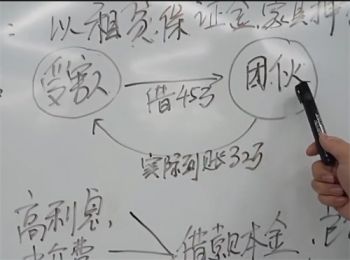 : 以租赁保证金、家具押
受害人
团伙
借45万
实际到账32万
高利息,
借款本金,